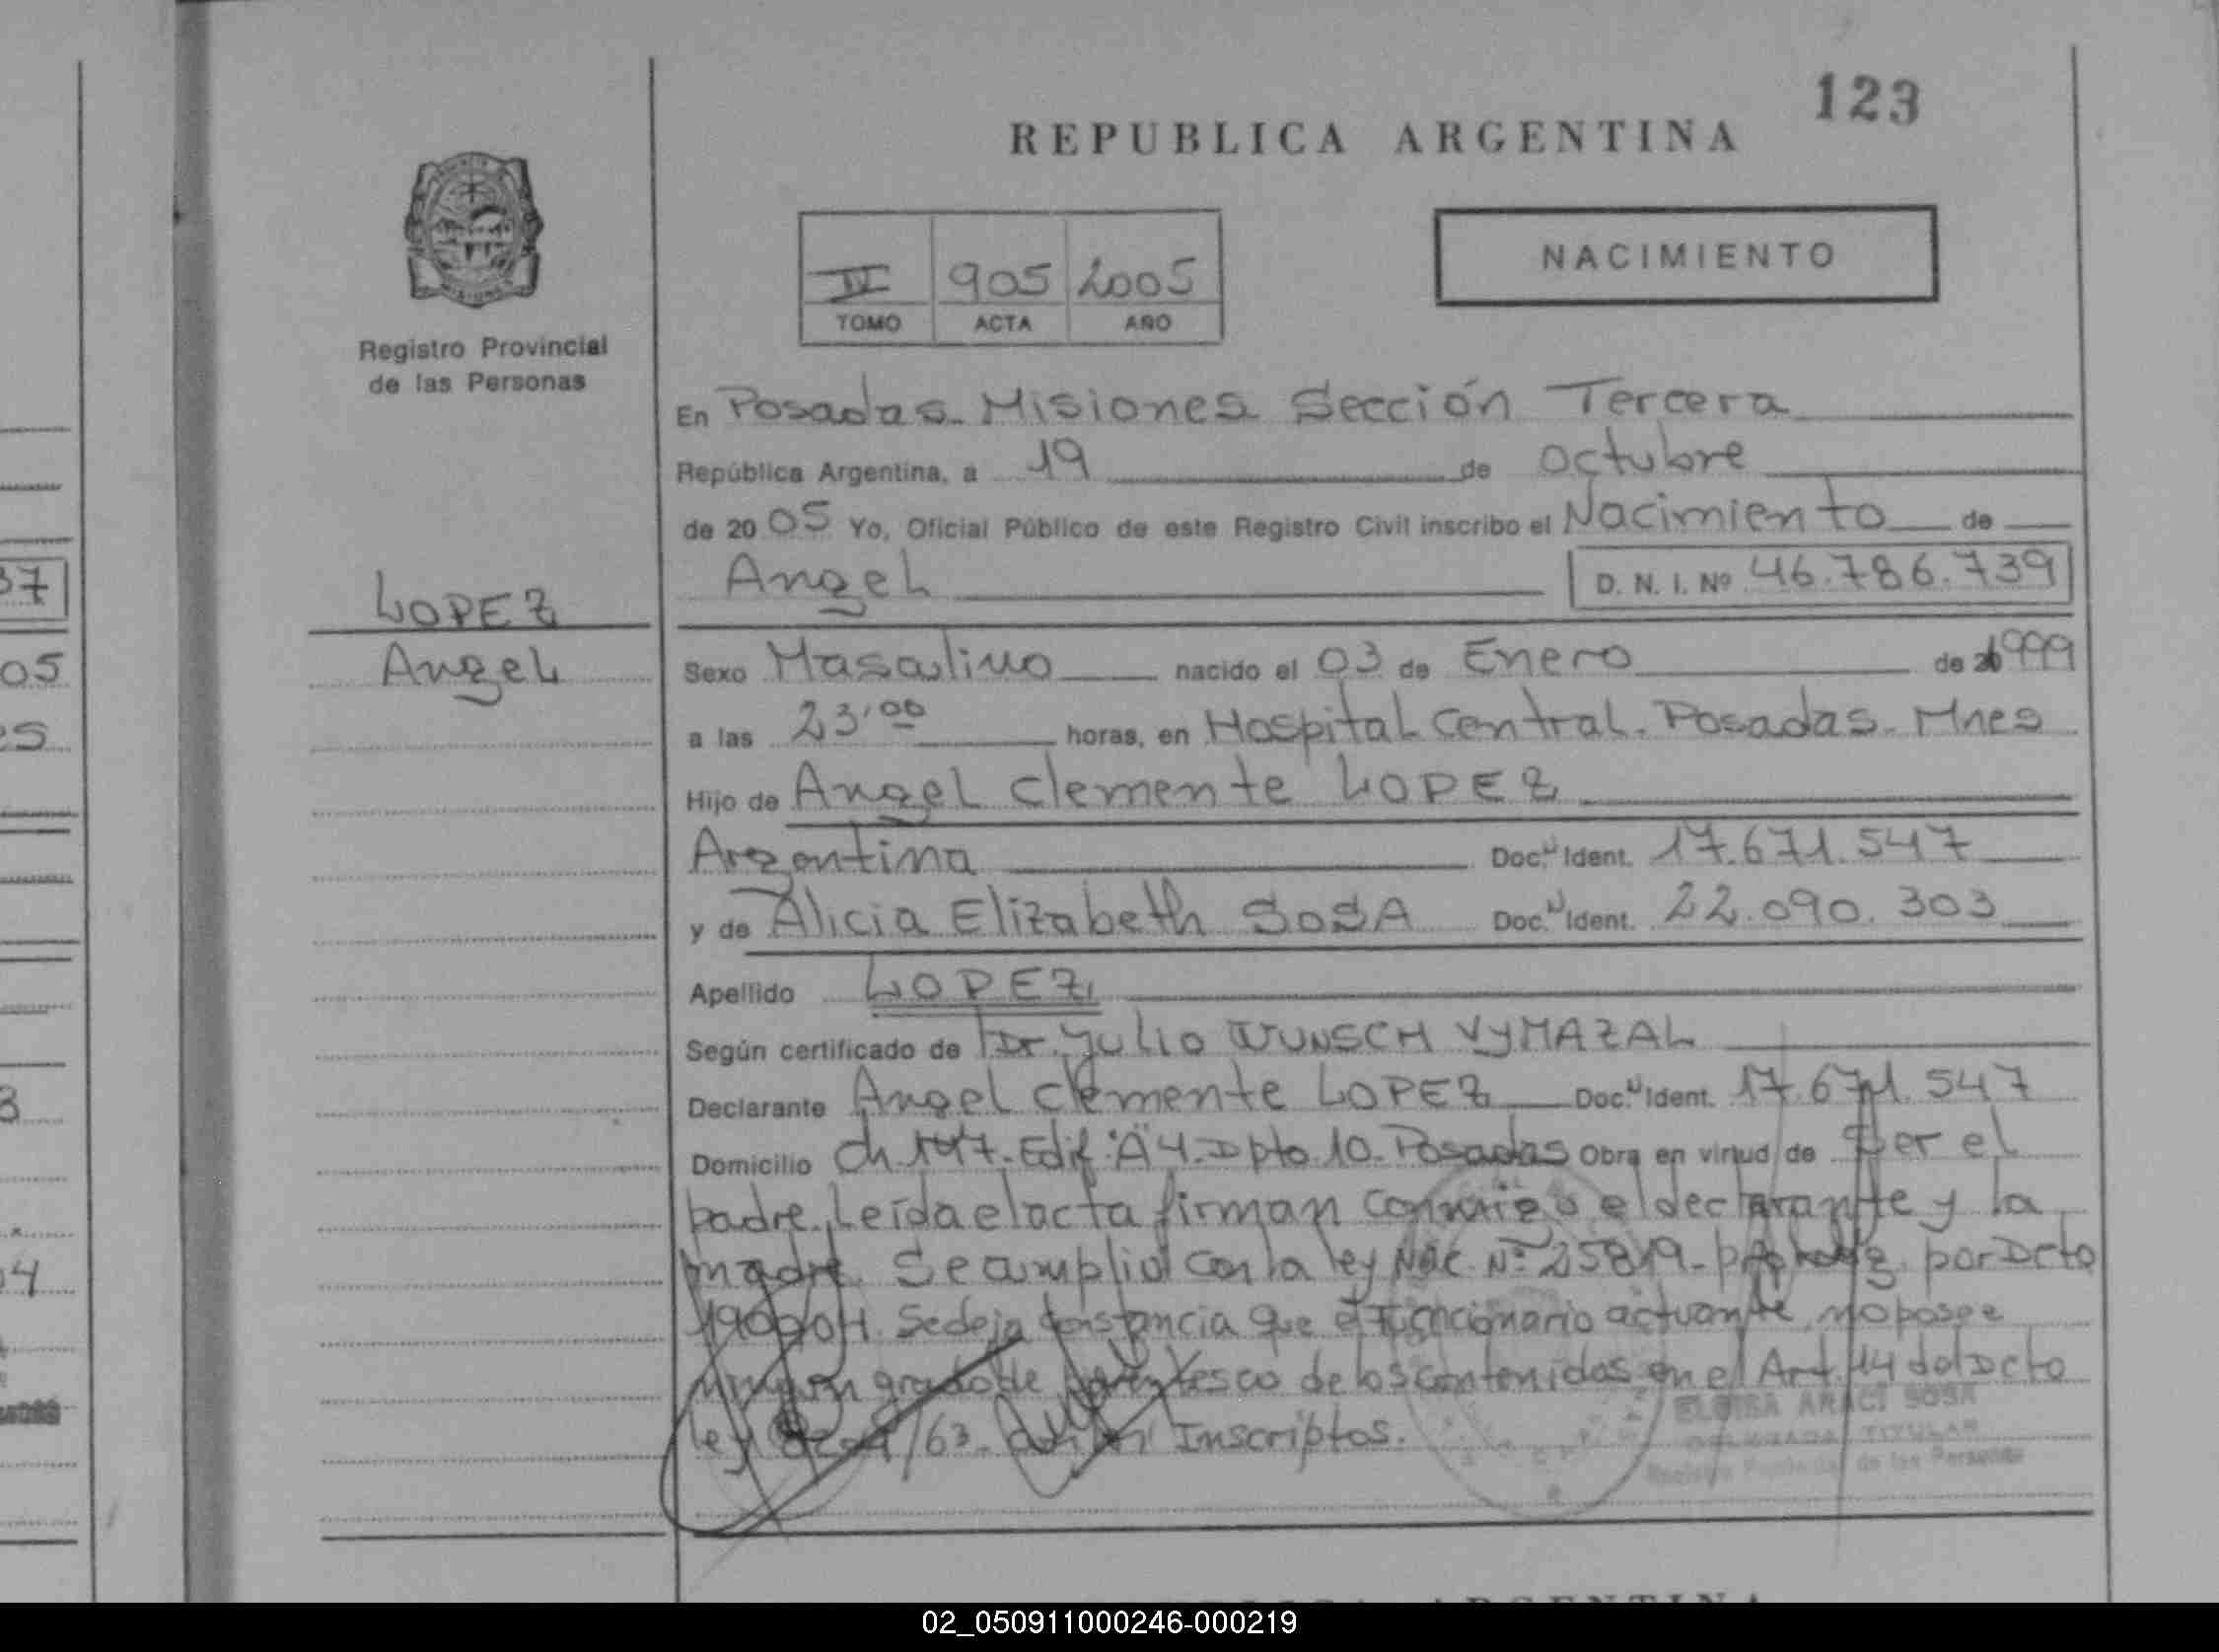 123
REPUBLICA ARGENTINA
NACIMIENTO
905 2005
TOMO ACTA AÑO
Registro Provincial
de las Personas
En Posadas. Misiones Sección Tercera
República Argentina, a 19 de octubre
de 20 05 Yo, Oficial Público de este Registro Civil inscribo el Nacimiento de
Angel D. N. I. Nº 46.786.739
LOPEZ
Angel
Sexo Masculino nacido el 03 de Enero de 1999
a las 23,00 horas, en Hospital Central. Posadas. Mnes
Hijo de Angel Clemente LOPEZ
Argentina Doc. Ident. 17.671.547
y de Alicia Elizabeth SOSA Doc. Ident. 22.090.303
Apellido LOPEZ
Según certificado de Dr. Julio WUNSCH VYMAZAL
Declarante Angel Clemente LOPEZ Doc. Ident. 17.671.547
Domicilio Ch. 147. Edif. "A"4. Dpto 10. Posadas Obra en virtud de Ser el
padre. Leida el acta firman conmigo el declarante y la
madre. Se amplió con la ley Nac. Nº 25819 por Dcto
190/2004. Se deja constancia que el funcionario actuante no posee
ningun grado de parentesco de los contenidos en el Art. 14 del Dcto
ley /63. Inscriptos.
ELOISA ARACI SOSA
DELEGADA TITULAR
Registro Provincial de las Personas
37
05
es
3
04
02_050911000246-000219